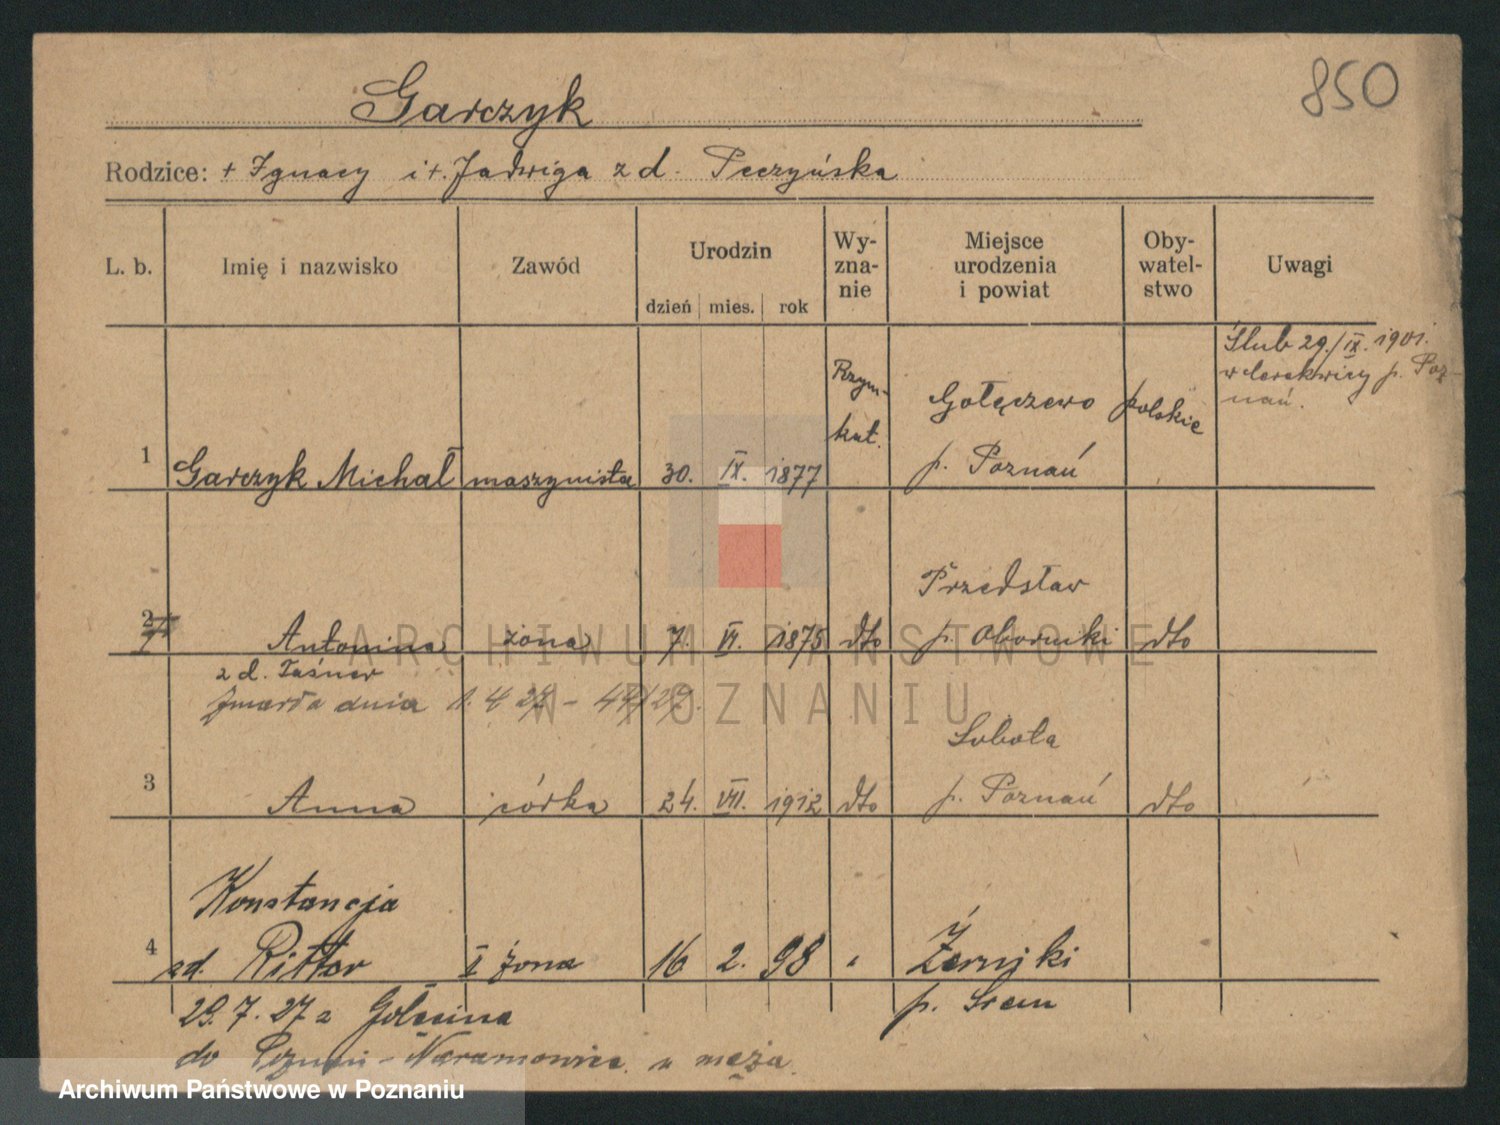 850
Garczyk
Rodzice: + Ignacy i +. Jadwiga z d. Peczyńska
L. b. Imię i nazwisko Zawód Urodzin dzień mies. rok Wy-zna-nie Miejsce urodzenia i powiat Oby-watel-stwo Uwagi
Ślub 29./IX. 1901.
w p. Poz-
nań.
Rzym-
kat.
Gołęczewo polskie
1 Garczyk Michał maszynista 30. IX. 1877 p. Poznań
Przedsław
2 Antonina żona 7. VI. 1875 dto p. Oborniki dto
z d. Taśner
Zmarła dnia 1. 4 27 –
Sobota
3 Anna córka 24. VII. 1912 dto p. Poznań dto
Konstancja
4 zd. Ritter II żona 16 2. 98 " Żerniki
p. Śrem
29. 7. 27 z Golęcina
do Poznań – Naramowice u męża
ARCHIWUM PAŃSTWOWE
W POZNANIU
Archiwum Państwowe w Poznaniu